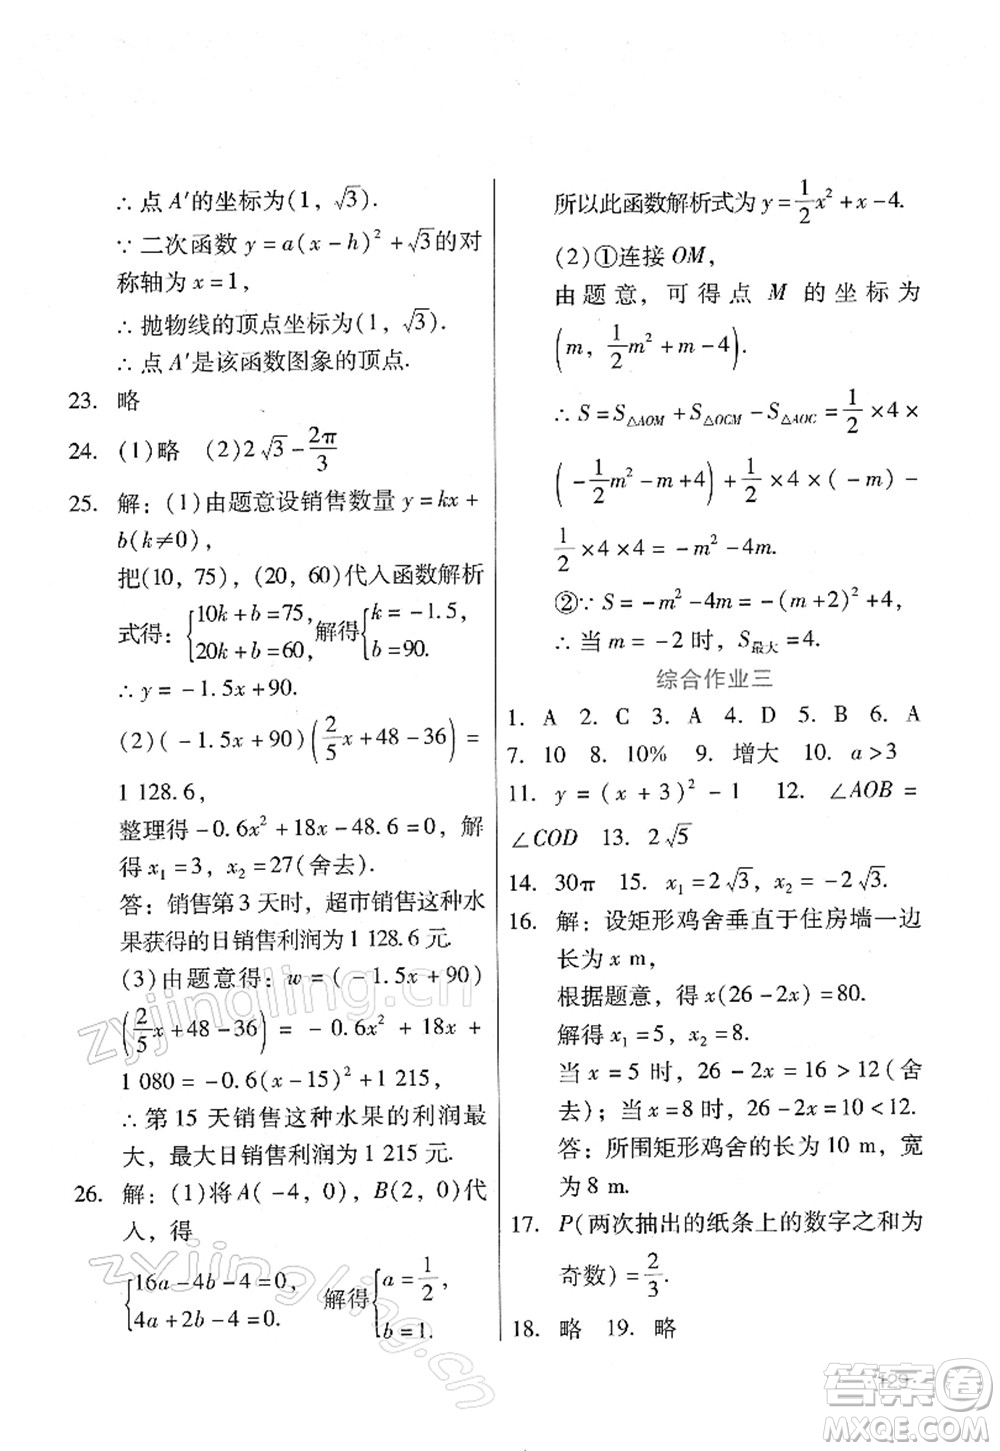 ∴ 点 A′的坐标为(1, √3).
∵ 二次函数 y = a(x - h)² + √3的对
称轴为 x = 1,
∴ 抛物线的顶点坐标为(1, √3).
∴ 点 A′是该函数图象的顶点.
23. 略
24. (1)略 (2)2√3 - 2π/3
25. 解: (1)由题意设销售数量 y = kx +
b(k≠0),
把(10, 75), (20, 60)代入函数解析
式得: {10k + b = 75, 20k + b = 60, 解得{k = -1.5, b = 90.
∴ y = -1.5x + 90.
(2)(-1.5x + 90)(2/5 x + 48 - 36) =
1 128.6,
整理得 -0.6x² + 18x - 48.6 = 0, 解
得 x₁ = 3, x₂ = 27(舍去).
答: 销售第 3 天时, 超市销售这种水
果获得的日销售利润为 1 128.6 元.
(3)由题意得: w = (-1.5x + 90)
(2/5 x + 48 - 36) = -0.6x² + 18x +
1 080 = -0.6(x - 15)² + 1 215,
∴ 第 15 天销售这种水果的利润最
大, 最大日销售利润为 1 215 元.
26. 解: (1)将 A(-4, 0), B(2, 0)代
入, 得
{16a - 4b - 4 = 0, 4a + 2b - 4 = 0. 解得{a = 1/2, b = 1.
所以此函数解析式为 y = 1/2 x² + x - 4.
(2)①连接 OM,
由题意, 可得点 M 的坐标为
(m, 1/2 m² + m - 4).
∴ S = S△AOM + S△OCM - S△AOC = 1/2 × 4 ×
(-1/2 m² - m + 4) + 1/2 × 4 × (-m) -
1/2 × 4 × 4 = -m² - 4m.
②∵ S = -m² - 4m = -(m + 2)² + 4,
∴ 当 m = -2 时, S最大 = 4.
综合作业三
1. A 2. C 3. A 4. D 5. B 6. A
7. 10 8. 10% 9. 增大 10. a > 3
11. y = (x + 3)² - 1 12. ∠AOB =
∠COD 13. 2√5
14. 30π 15. x₁ = 2√3, x₂ = -2√3.
16. 解: 设矩形鸡舍垂直于住房墙一边
长为 x m,
根据题意, 得 x(26 - 2x) = 80.
解得 x₁ = 5, x₂ = 8.
当 x = 5 时, 26 - 2x = 16 > 12 (舍
去); 当 x = 8 时, 26 - 2x = 10 < 12.
答: 所围矩形鸡舍的长为 10 m, 宽
为 8 m.
17. P(两次抽出的纸条上的数字之和为
奇数) = 2/3.
18. 略 19. 略
· 129 ·
zyjingling.cn
zyjingling.cn
答案圈
MXQE.COM